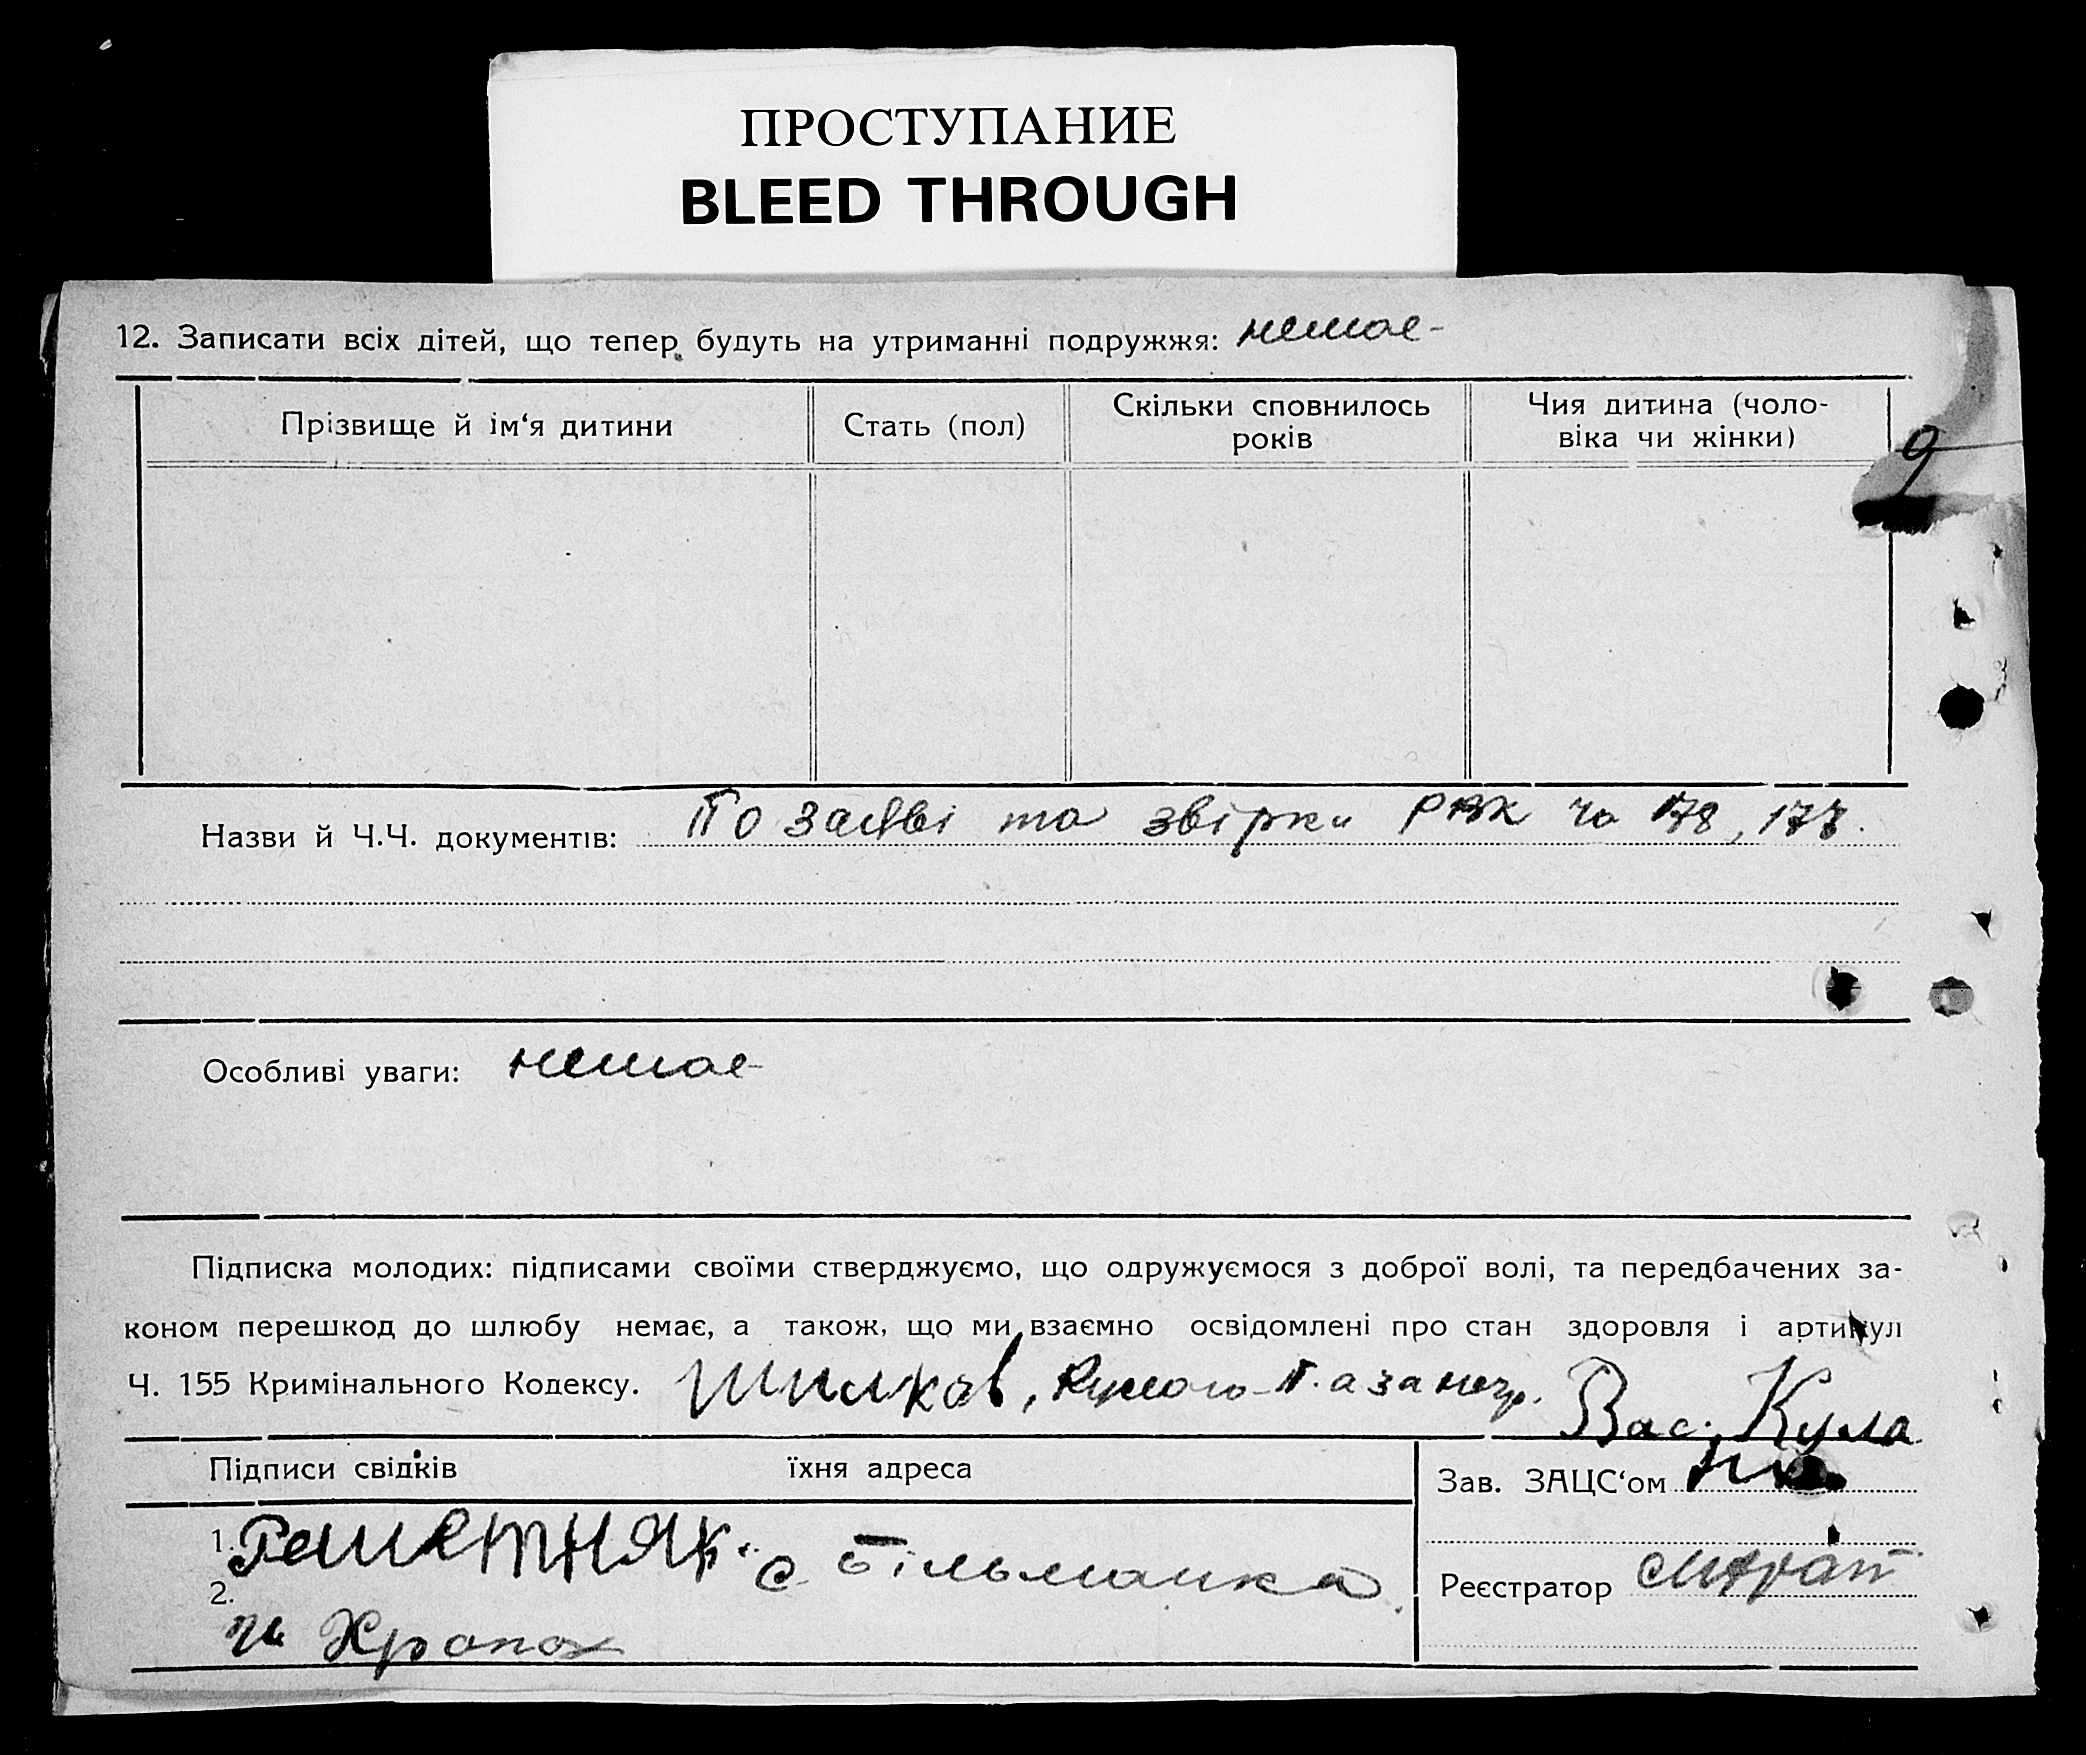 ПРОСТУПАНИЕ
BLEED THROUGH
12. Записати всіх дітей, що тепер будуть на утриманні подружжя: немає
Прізвище й ім‘я дитини
Стать (пол)
Скільки сповнилось
років
Чия дитина (чоло-
віка чи жінки)
9
Назви й Ч.Ч. документів: По заяві та звірки РВК 178, 177.
Особливі уваги: немає
Підписка молодих: підписами своїми стверджуємо, що одружуємося з доброї волі, та передбачених за-
коном перешкод до шлюбу немає, а також, що ми взаємно освідомлені про стан здоровля і артикул
Ч. 155 Кримінального Кодексу. Шилков, за негр. Вас. Кула
Підписи свідків їхня адреса
Зав. ЗАЦС‘ом
1. Решетняк. с. Більманка
2.
Реєстратор
Хропо